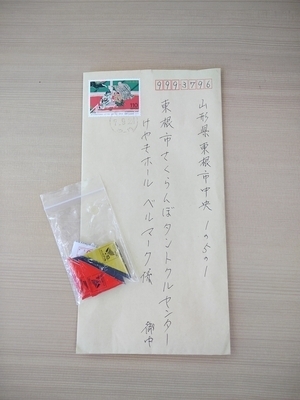 9993796
山形県東根市中央1の5の1
東根市さくらんぼタントクルセンター
けやきホール ベルマーク係
御中